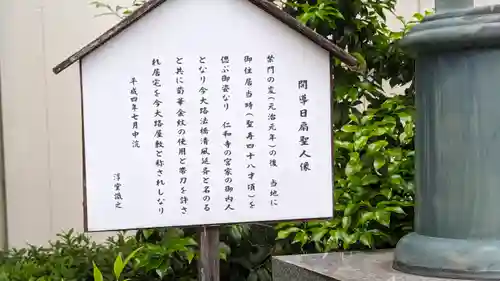 開導日扇聖人像
禁門の変(元治元年)の後 当地に
御住居当時(聖寿四十八才頃)を
偲ぶ御姿なり 仁和寺の宮家の御内人
となり今大路法橋清風延斎と名のる
と共に菊華金紋の使用と帯刀を許さ
れ居宅を今大路屋敷と称されしなり
平成四年七月中浣
淳堂識之